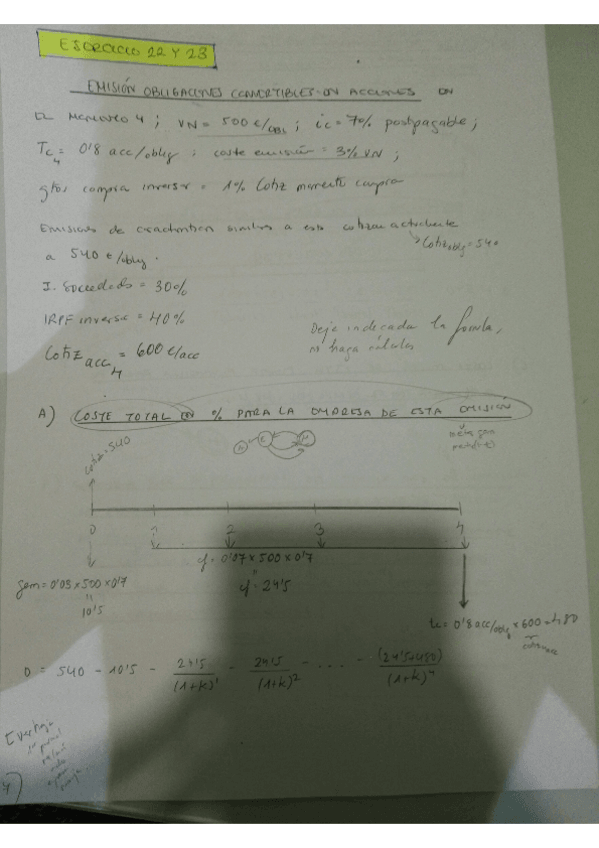 EJERCICIO 22 Y 23
EMISIÓN OBLIGACIONES CONVERTIBLES EN ACCIONES EN
EL MOMENTO 4 ; VN = 500 €/OBL ; ic = 7% postpagable ;
Tc4 = 0'8 acc/oblig ; coste emisión = 3% VN ;
gtos compra inversor = 1% Cotiz momento compra
Emisiones de similares a esta cotizan actualmente
a 540 €/oblig.
Cotiz oblig = 540
I. Sociedades = 30%
IRPF inversor = 40%
Cotiz acc4 = 600 €/acc
Deje indicada la fórmula,
no haga cálculos
A) COSTE TOTAL EN % PARA LA EMPRESA DE ESTA EMISIÓN
Cotiz = 540
0 1 2 3 4
cf = 0'07 x 500 x 0'7
"
cf = 24'5
gem = 0'03 x 500 x 0'7
"
10'5
tc = 0'8 acc/oblig x 600 = 480
0 = 540 - 10'5 - 24'5/(1+k)^1 - 24'5/(1+k)^2 - ... - (24'5+480)/(1+k)^4